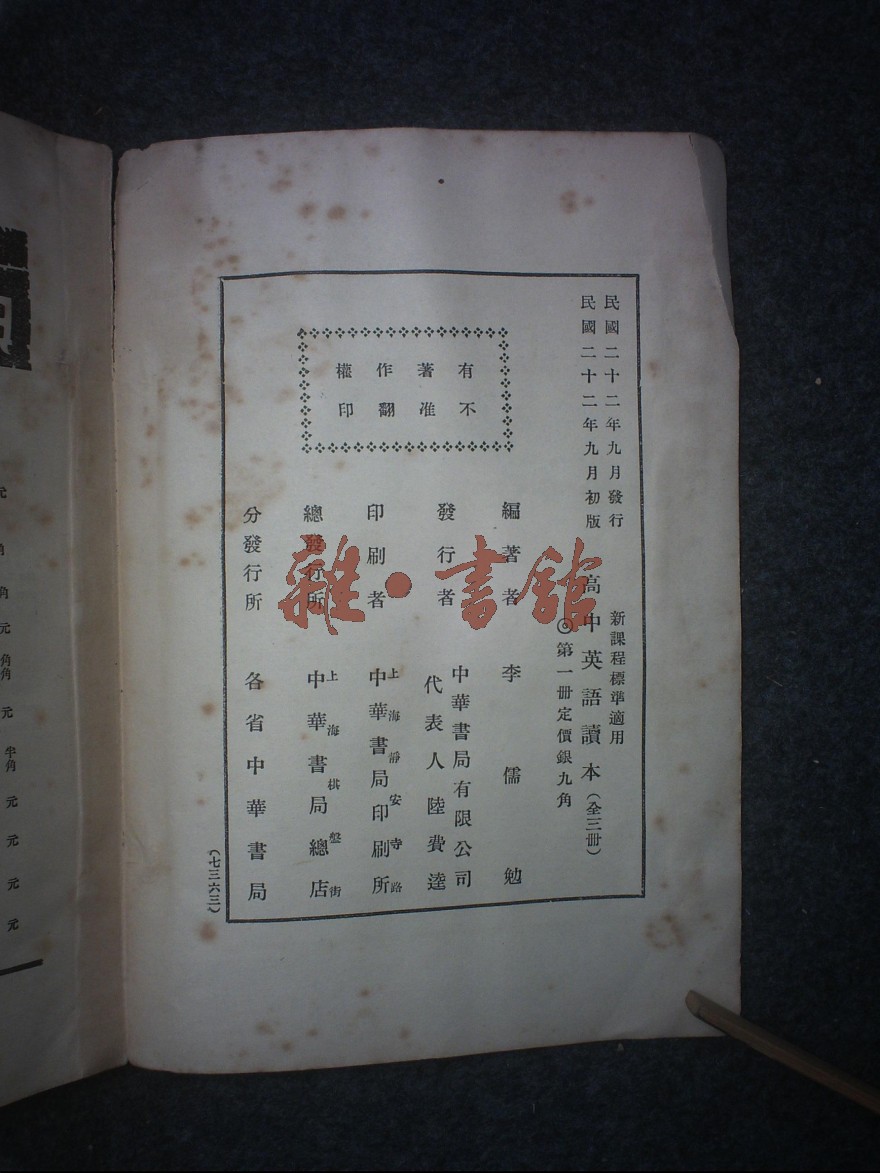 民國二十二年九月發行
民國二十二年九月初版
新課程標準適用
高中英語讀本（全三冊）
◎第一冊定價銀九角
有著作權
不准翻印
編著者 李儒勉
發行者 中華書局有限公司
代表人陸費逵
印刷者 上海靜安寺路
中華書局印刷所
總發行所 上海棋盤街
中華書局總店
分發行所 各省中華書局
（七三六三）
雜·書館
元
角
元
角
角
元
半
角
元
元
元
元